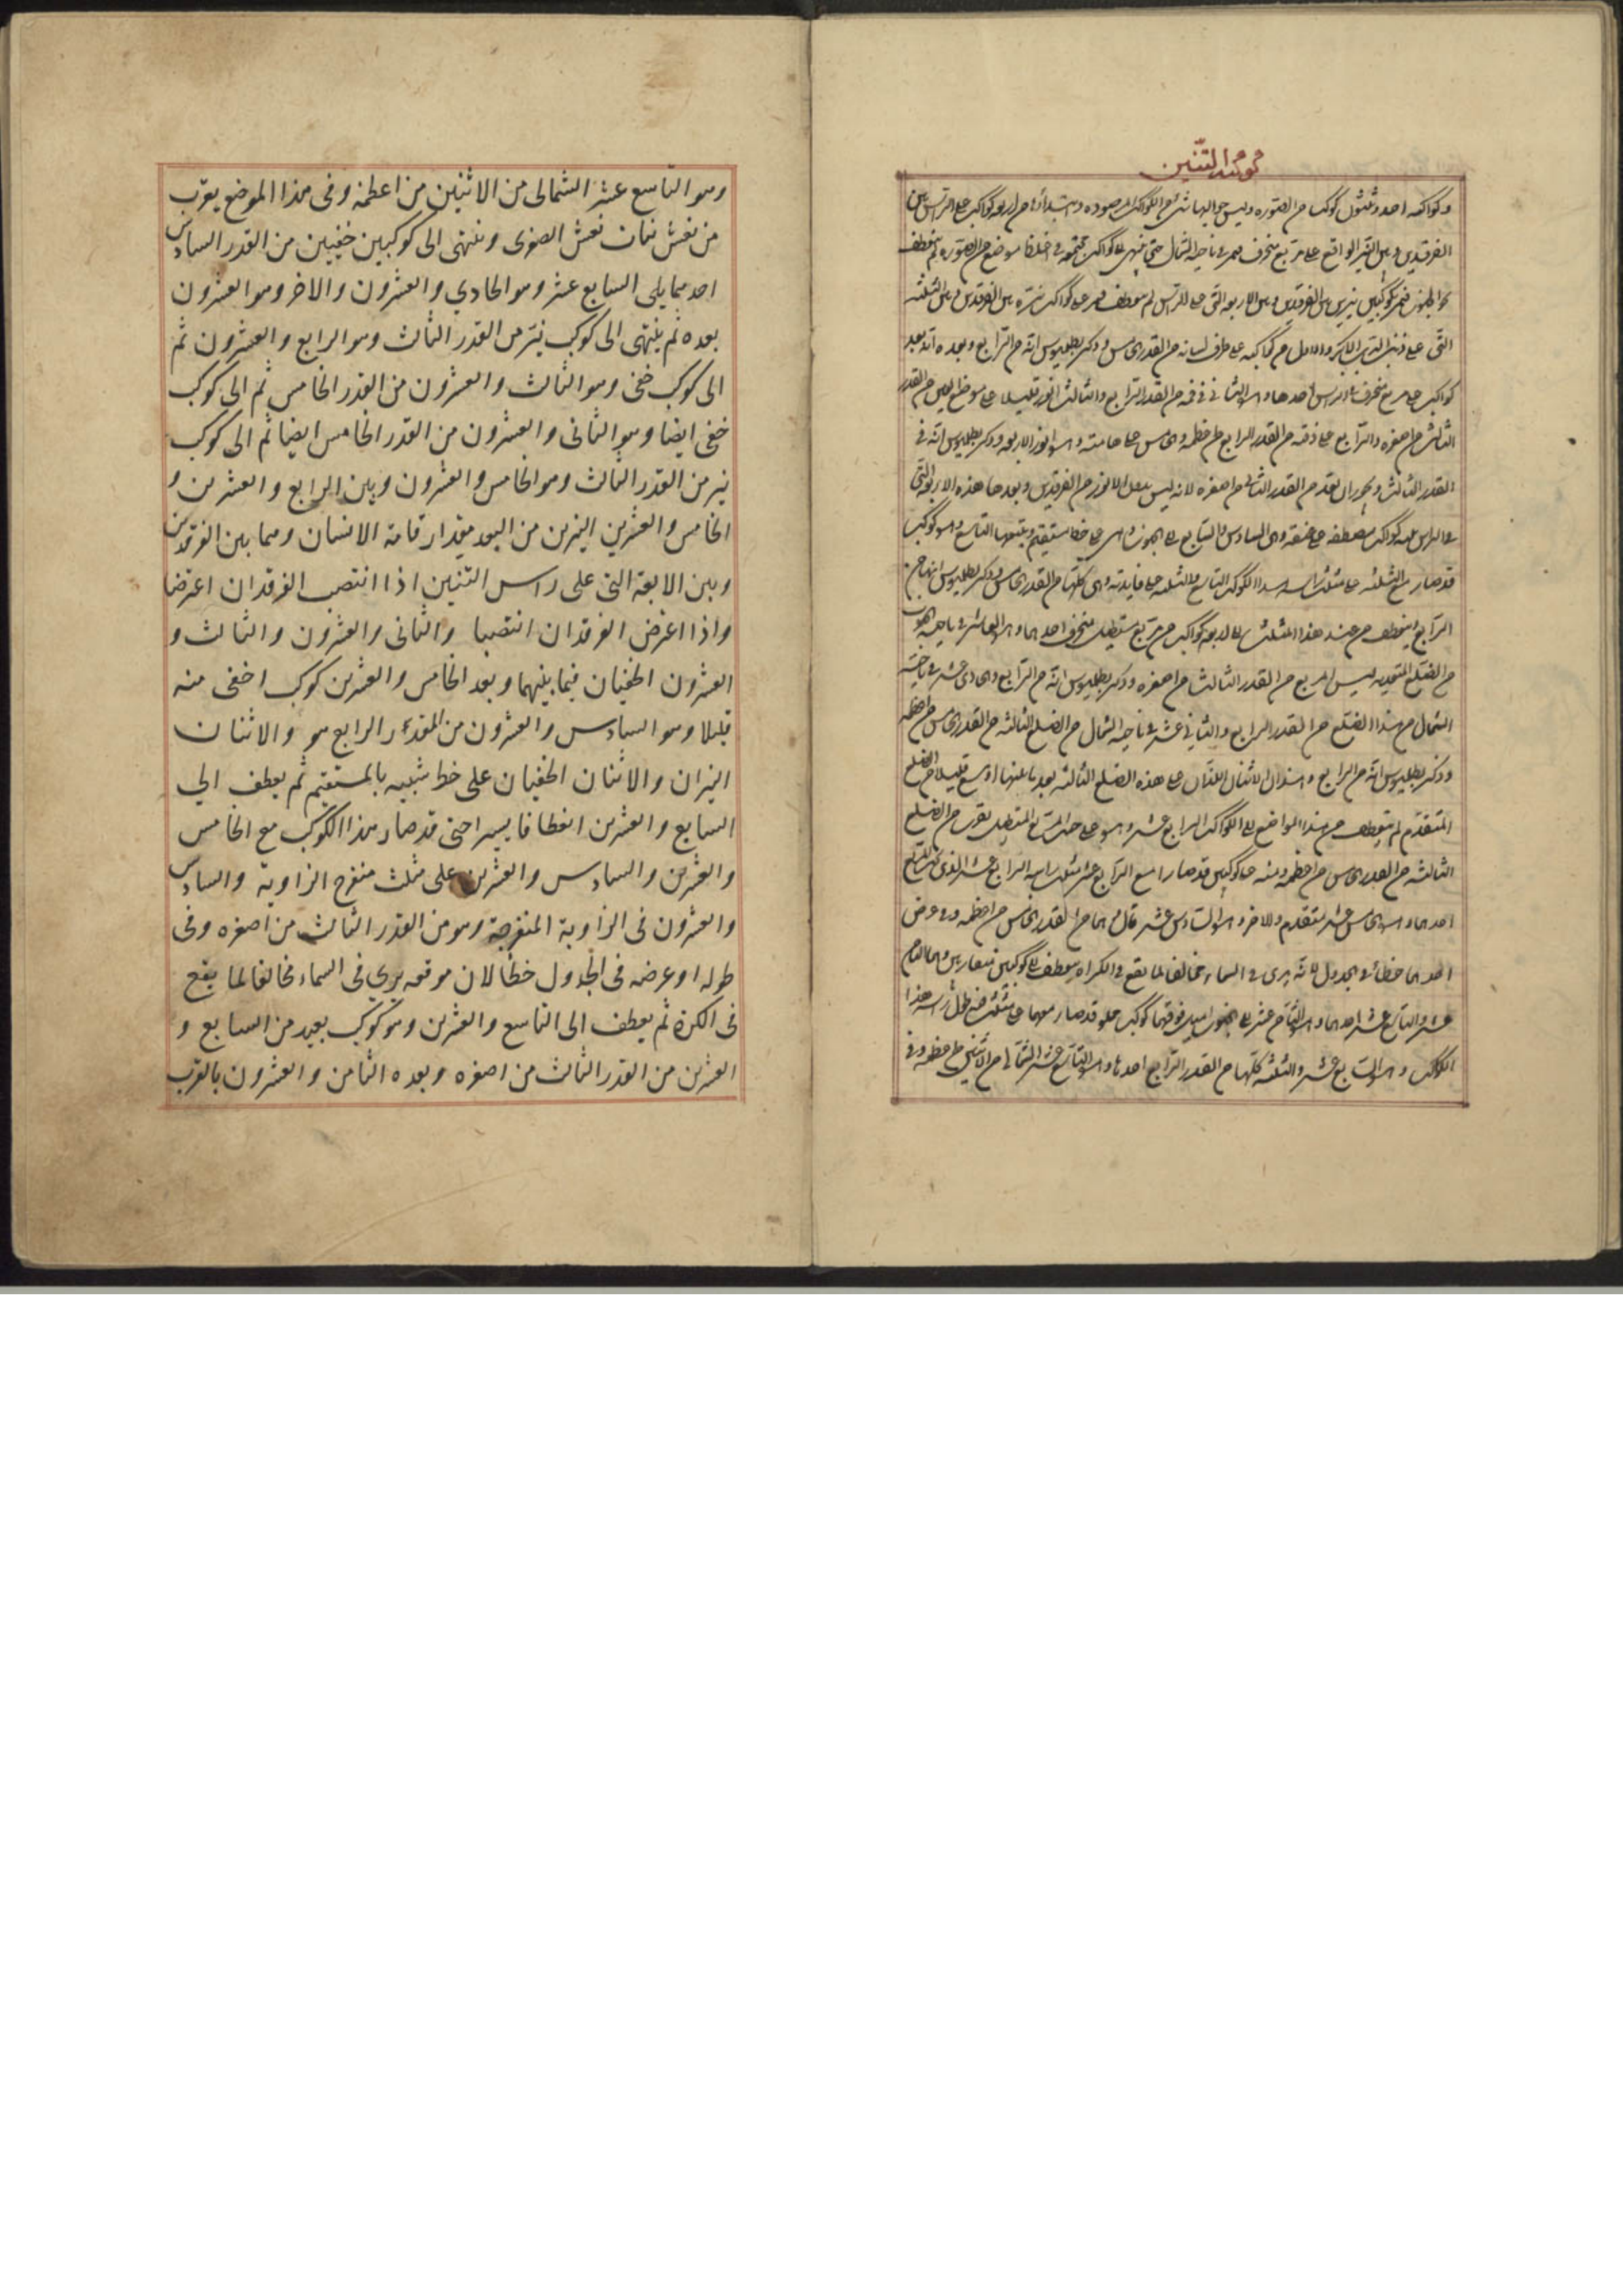 كوكبة التنين
وكواكبه احد وثلثون كوكبا من الصورة وليس حواليها شئ من الكواكب المرصودة وابتداؤها من اربعة كواكب على الراس بين
الفرقدين وبين النسر الواقع على مربع منحرف فيمر في ناحية الشمال حتى ينتهي الى كواكب مجتمعة في موضع من الصورة ثم ينعطف
نحو الجنوب فيمر بكوكبين نيرين بين الفرقدين وبين الاربعة التي على الراس ثم ينعطف فيمر على كواكب نيرة بين الفرقدين وبين الثلثة
التي على ذنب الدب الاكبر والاول من كواكبه على طرف لسانه من القدر الخامس وذكر بطلميوس انه من الرابع وبعده اربعة
كواكب على مربع منحرف على الراس احدها وهو الثاني في فمه من القدر الرابع والثالث انور قليلا على موضع العين من القدر
الثالث من اصغره والرابع على ذقنه من القدر الرابع من اعظمه والخامس على هامته وهو انور الاربعة وذكر بطلميوس انه في
القدر الثالث ويجوز ان يعد من القدر الثاني من اصغره لانه ليس بدون الانور من الفرقدين وبعد هذه الاربعة التي
على الراس ثلثة كواكب منعطفة على عنقه وهى السادس والسابع الى الجنوب وهى على خط مستقيم ويتبعها التاسع وهو كوكب
قد صار مع الثلثة على مثلث راسه هذا الكوكب التاسع والثلثة على قاعدته وهى كلها من القدر الخامس وذكر بطلميوس انها من
الرابع وينعطف من عند هذا المثلث الى اربعة كواكب على مربع مستطيل منحرف احدها وهو العاشر في ناحية الجنوب
من الضلع المتقدمة من المربع من القدر الثالث من اصغره وذكر بطلميوس انه من الرابع والحادي عشر في ناحية
الشمال من هذا الضلع من القدر الرابع والثاني عشر في ناحية الشمال من الضلع الثالثة من القدر الخامس من اعظمه
وذكر بطلميوس انه من الرابع وهذان الاثنان اللذان على هذه الضلع الثالثة بعد ما بينهما اوسع قليلا من الضلع
المتقدم ثم ينعطف من هذا المواضع الى الكواكب الرابع عشر وهو على جنب المربع المستطيل بقرب من الضلع
الثالثة من القدر الخامس من اعظمه ومنه على كوكبين قد صارا مع الرابع عشر مثلث راسه الرابع عشر الذي
احدهما وهو الخامس عشر متقدم والاخر وهو السادس عشر تال وهما من القدر الخامس من اعظمه وفي عرض
احدهما خطأ في الجدول لانه يرى في السماء مخالفا لما يقع في الكرة وينعطف الى كوكبين متقاربين وهما الثامن
عشر والتاسع عشر احدهما وهو الثامن عشر الى الجنوب اميل وفوقهما كوكب قد صار معهما على مثلث فيه طول راسه هذا
الكوكب وهو السابع عشر والثلثة كلها من القدر الرابع احدها وهو التاسع عشر الشمالي من الاثنين من اعظمه وفي
وهو التاسع عشر الشمالى من الاثنين من اعظمه وفى هذا الموضع يقرب
من نعش بنات نعش الصغرى وينتهى الى كوكبين خفيين من القدر السادس
احدهما يلى السابع عشر وهو الحادي والعشرون والاخر وهو العشرون
بعده ثم ينتهى الى كوكب نير من القدر الثالث وهو الرابع والعشرون ثم
الى كوكب خفى وهو الثالث والعشرون من القدر الخامس ثم الى كوكب
خفى ايضا وهو الثانى والعشرون من القدر الخامس ايضا ثم الى كوكب
نير من القدر الثالث وهو الخامس والعشرون وبين الرابع والعشرين و
الخامس والعشرين النيرين من البعد مقدار قامة الانسان وهما بين الفرقدين
وبين الابعة التى على راس التنين اذا انتصب الفرقدان اعترضا
واذا اعترض الفرقدان انتصبا والثانى والعشرون والثالث و
العشرون الخفيان فيما بينهما وبعد الخامس والعشرين كوكب اخفى منه
قليلا وهو السادس والعشرون من القدر الرابع هو والاثنان
النيران والاثنان الخفيان على خط شبيه بالمستقيم ثم يعطف الي
السابع والعشرين انعطافا يسيرا حتى قد صار هذا الكوكب مع الخامس
والعشرين والسادس والعشرين على مثلث منفرج الزاوية والسادس
والعشرون فى الزاوية المنفرجة وهو من القدر الثالث من اصغره وفى
طوله او عرضه فى الجدول خطأ لان موقعه يري فى السماء مخالفا لما يقع
فى الكرة ثم يعطف الى التاسع والعشرين وهو كوكب بعيد من السابع و
العشرين من القدر الثالث من اصغره وبعده الثامن والعشرون بالقرب